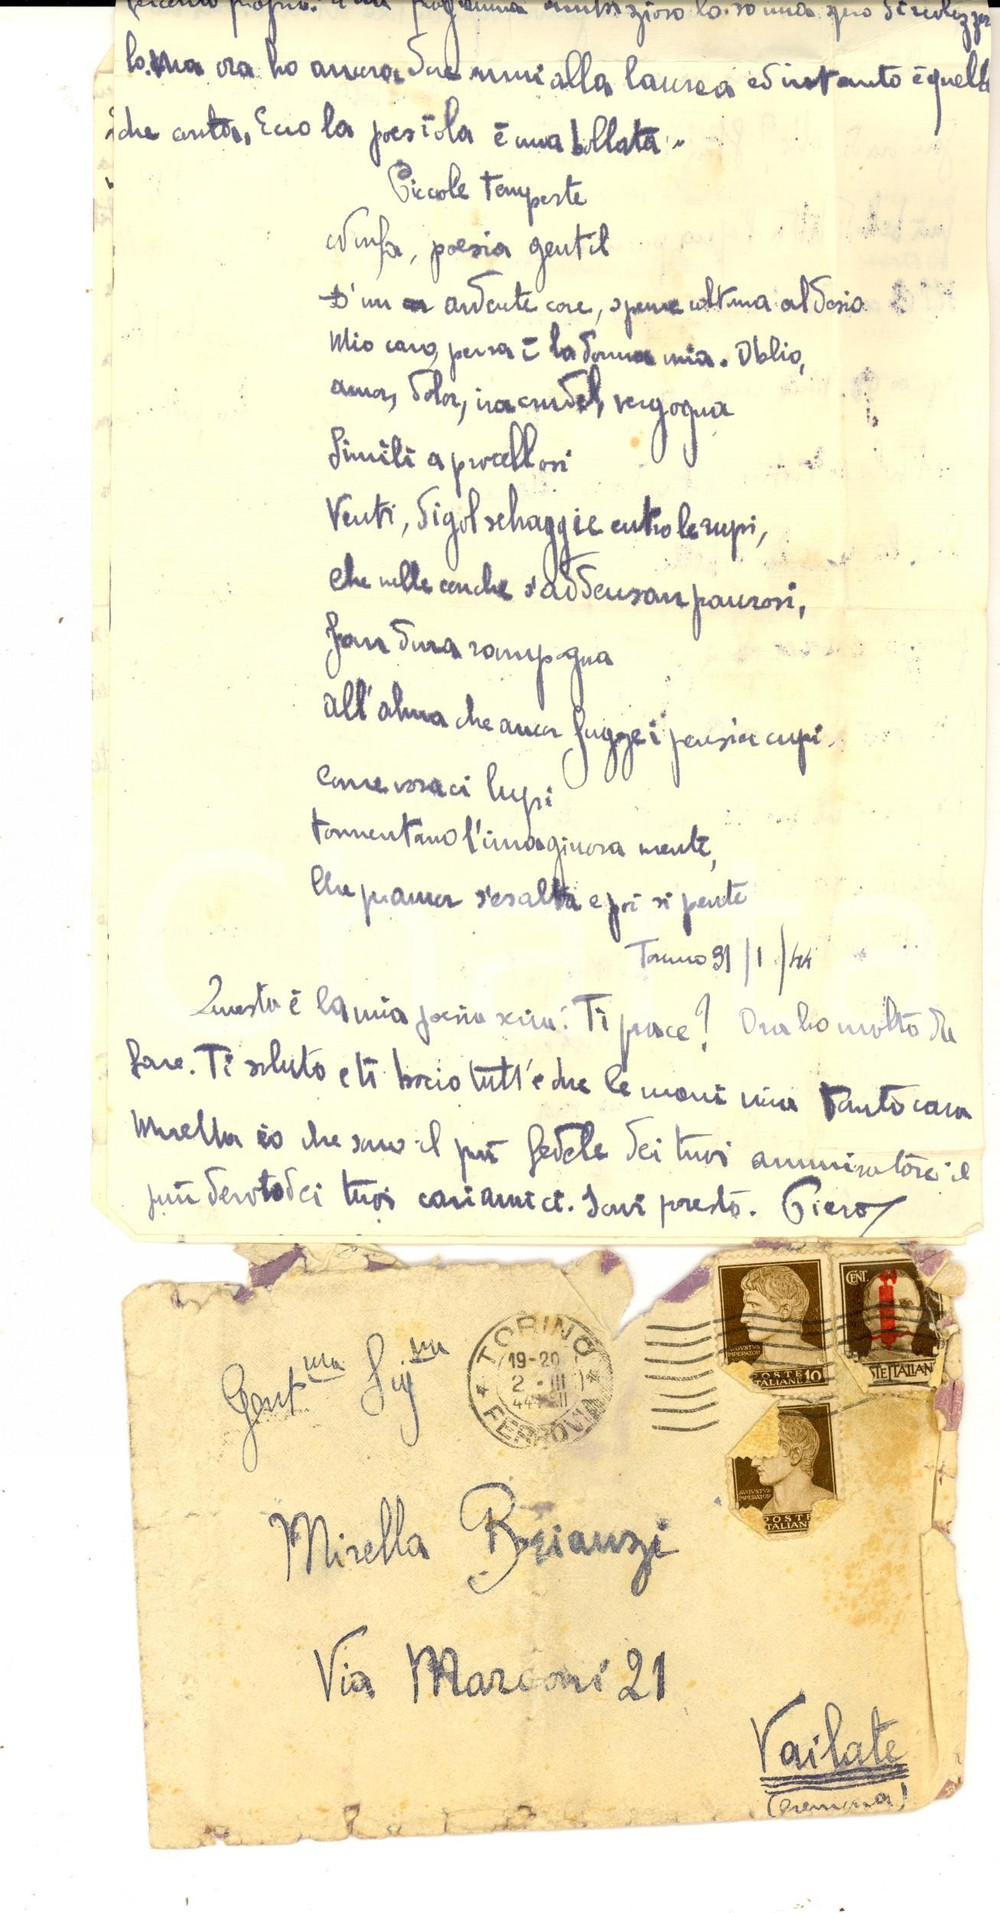 programma ambizioso lo so ma spero di realizzar
lo. Ma ora ho ancora due anni alla laurea ed intanto è quella
che conta. Ecco la poesiola è una ballata.
Piccole tempeste
Ninfa, poesia gentil
D'un ardente core, speme ultima al desio
Mio caro, persa è la donna mia. Oblio,
amor, dolor, ira crudel, vergogna
Simili a procellosi
Venti, di gol selvaggie entro le rupi,
che nelle conche s'addensan paurosi,
fan dura rampogna
all'alma che ancor fugge i pensier cupi.
Come voraci lupi
tormentano l'imaginosa mente,
Che pria s'esalta e poi si pente
Torino 31/1/44
Questa è la mia poesia. Ti piace? Ora ho molto da
fare. Ti saluto e ti bacio tutt'e due le mani mia tanto cara
Mirella io che sono il più fedele dei tuoi ammiratori e il
più devoto dei tuoi cari amici. Scrivi presto. Piero
Gent.ma Sig.na
TORINO
19-20
2 - III
44
FERROVIA
AVGVSTVS
IMPERATOR
POSTE
ITALIANE 10
CENT.
POSTE ITALIANE
AVGVSTVS
IMPERATOR
POSTE
ITALIANE
Mirella Brianzi
Via Marconi 21
Vailate
(Cremona)